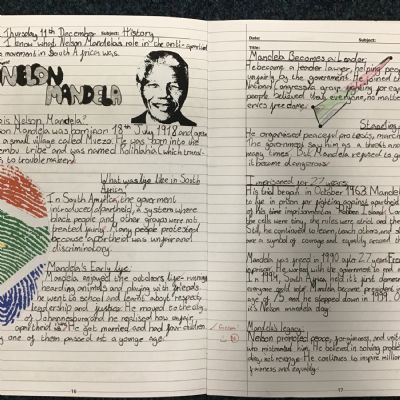 Thursday 11th December Subject: History
I know what Nelson Mandela's role in the anti-apartheid
movement in South Africa was.
NELSON
MANDELA
is Nelson Mandela?
on Mandela was born on 18th July 1918 and grew
a small village called Mvezo. He was born into the
embu tribe and was named Rolihlahla which transl-
to trouble maker.
What was life like in South
Africa?
In South America, the government
introduced apartheid, a system where
black people and other groups were not
treated fairly. Many people protested
because apartheid was unfair and
discriminatory.
Mandela's Early Life:
Mandela enjoyed the outdoors life- running
hearding animals and playing with friends.
he went to school and learnt about respect,
leadership and justice. He moved to the city
of Johannesburg and he realised how unfair
apartheid was. He got married and had four children
one of them passed at a young age.
16
Date: Subject:
Title:
Mandela Becomes a Leader
He became a leader lawyer, helping people
unfairly by the government. He joined the
National Congress, a group fighting for equal
people believed that everyone, no matter
Standing
He organised peaceful protests, march
The government saw him as a threat and
many times. But Mandela refused to g
it became dangerous.
Imprisoned for 27 years
His trial began in October 1963 Mandel
to life in prison for fighting against apartheid
of his time imprisoned on Robben Island
the cells were tiny, the rules were strict and the
Still, he continued to learn, teach others, and s
as a symbol of courage and equality around th
Mandela was freed in 1990 after 27 years
imprisoner. He worked with the government to end
In 1994, South Africa held it's first democ
everyone could vote. Mandela became president
age of 75 and he stepped down in 1999.
it's Nelson mandela day.
Mandela's legacy:
Nelson promoted peace, forgiveness, and unit
who mistreated him. He believed in solving proble
not revenge. He continues to inspire million
fairness and equality.
17